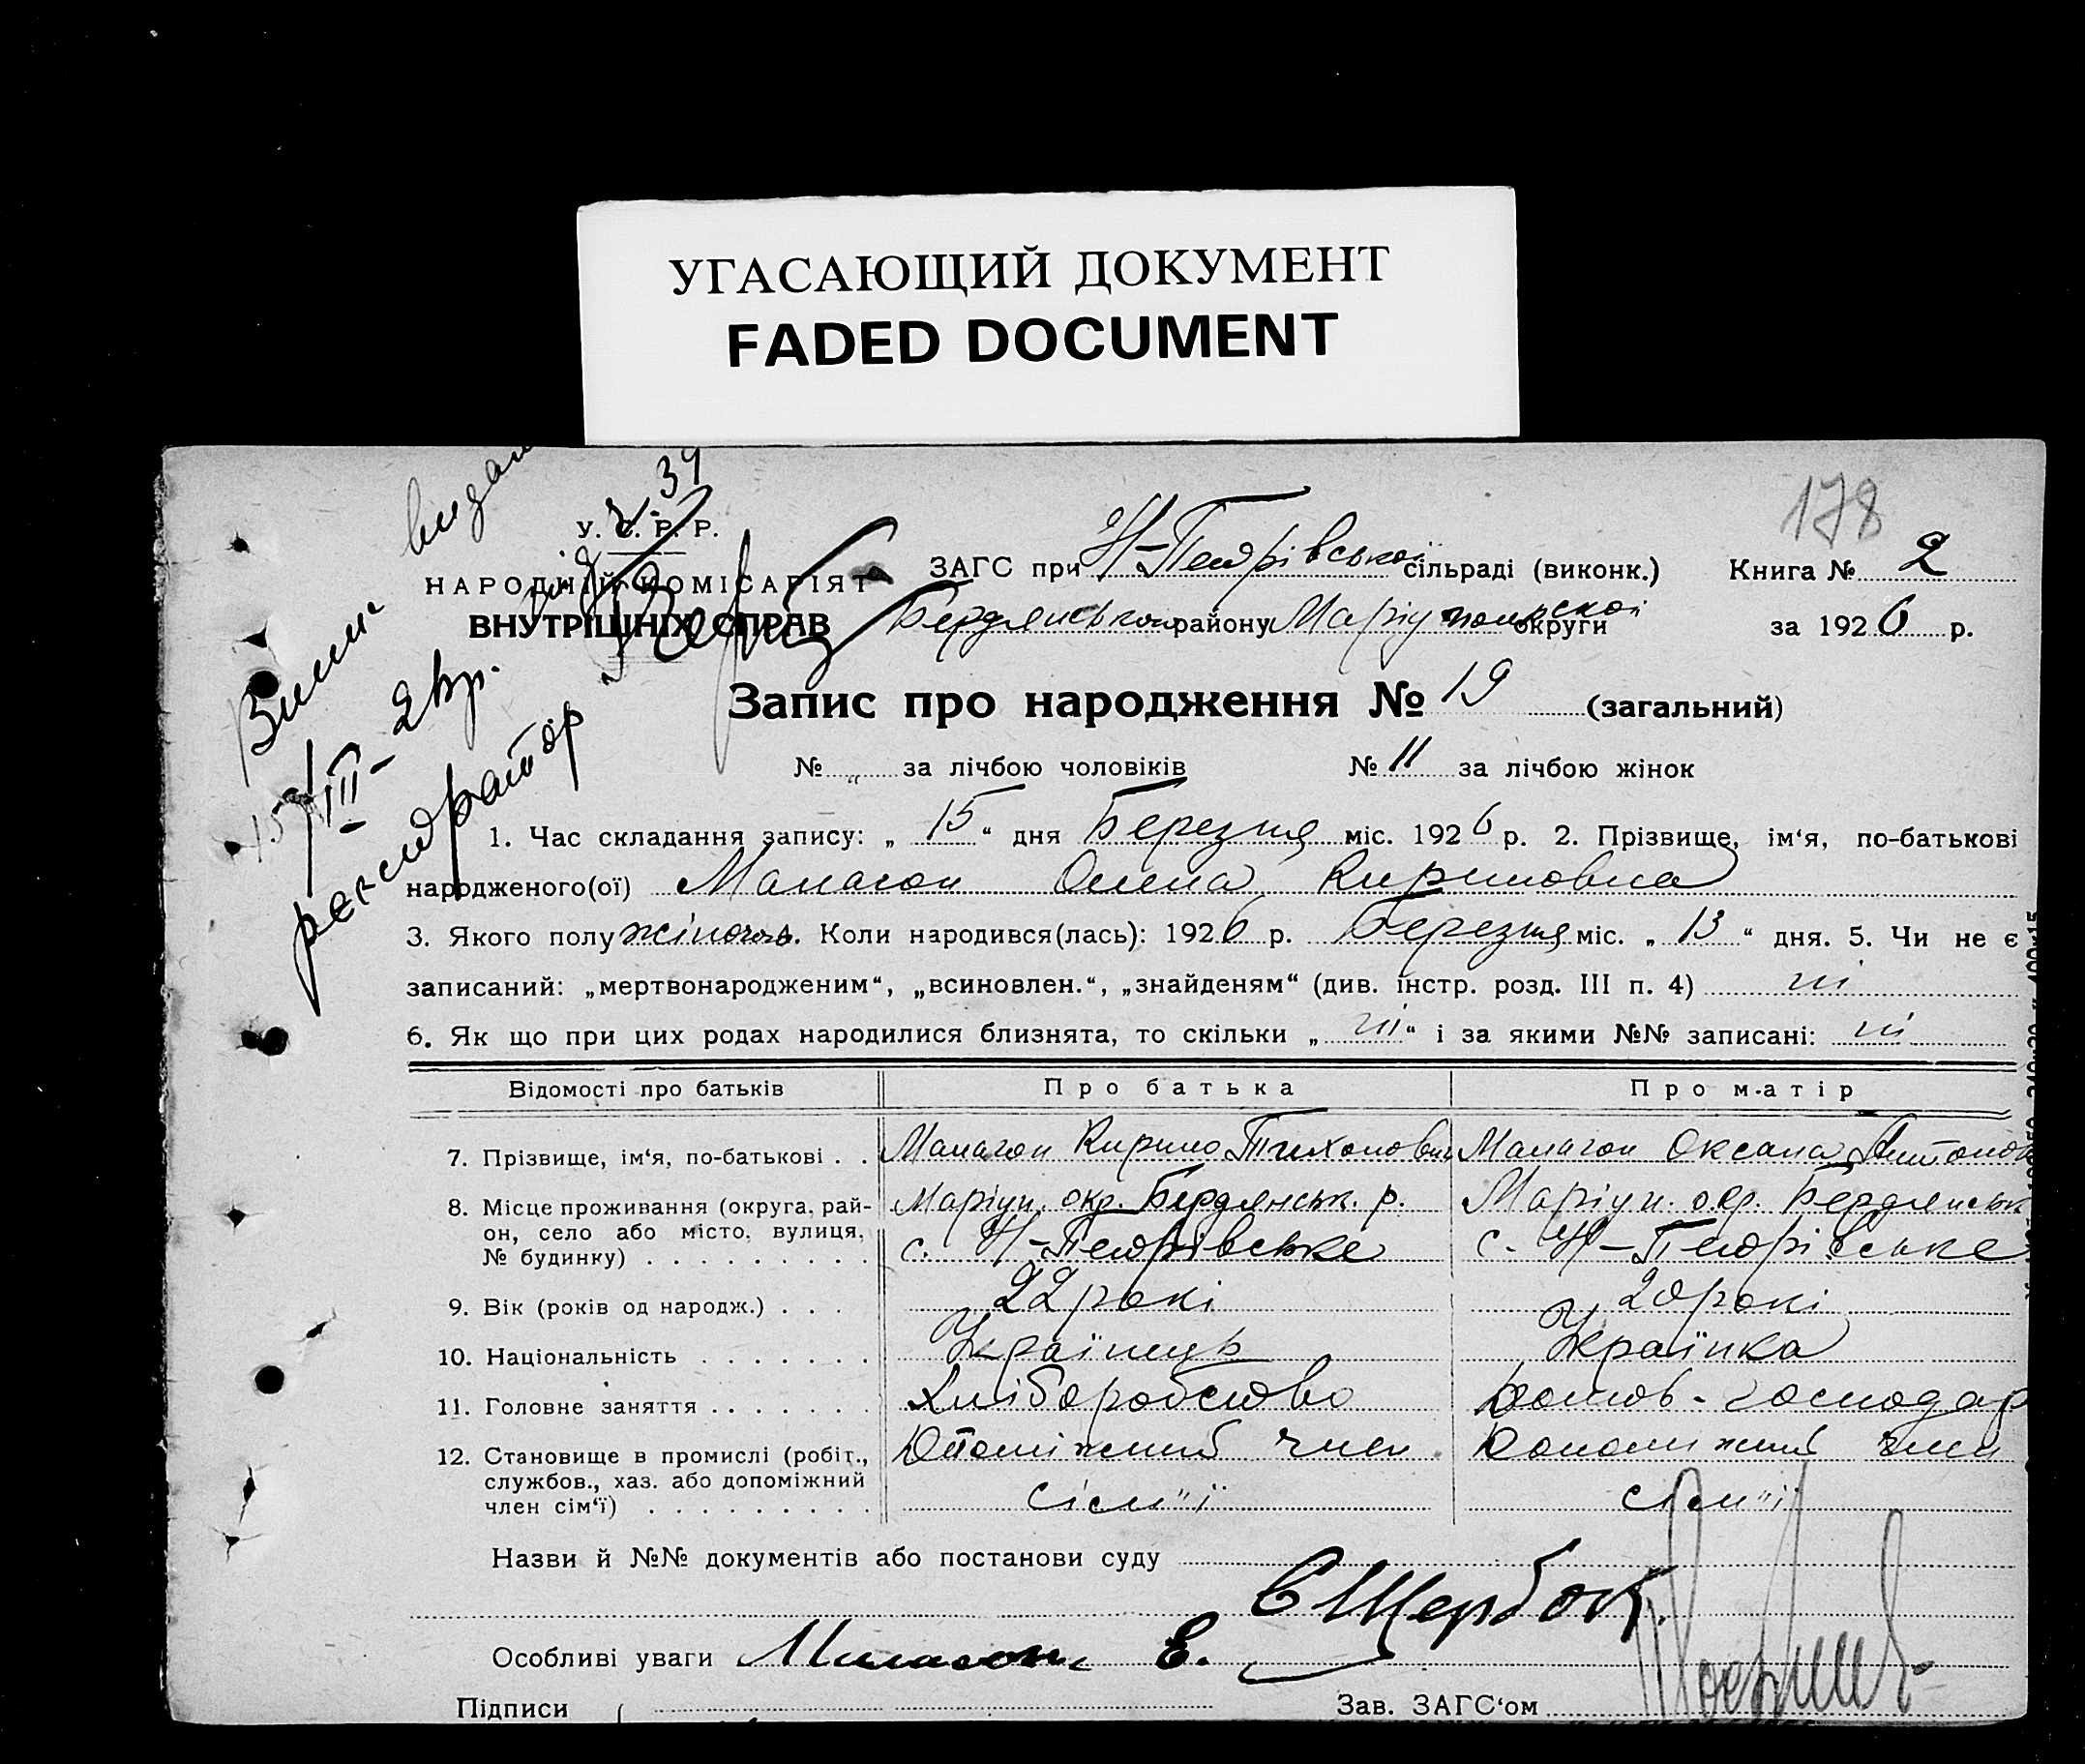 УГАСАЮЩИЙ ДОКУМЕНТ
FADED DOCUMENT
178
У. С. Р. Р.
НАРОДНІЙ КОМІСАРІЯТ
ВНУТРІШНІХ СПРАВ
ЗАГС при Н-Петрівської сільраді (виконк.) Книга № 2
Бердянського району Маріупольської округи за 1926 р.
Запис про народження № 19 (загальний)
№ „ за лічбою чоловіків № 11 за лічбою жінок
1. Час складання запису: „ 15 “ дня Березня міс. 1926 р. 2. Прізвище, ім‘я, по-батькові
народженого(ої) Малагон Олена Кириловна
3. Якого полу жіночого. Коли народився(лась): 1926 р. Березня міс. „ 13 “ дня. 5. Чи не є
записаний: „мертвонародженим“, „всиновлен.“, „знайденям“ (див. інстр. розд. III п. 4) ні
6. Як що при цих родах народилися близнята, то скільки „ ні “ і за якими №№ записані: ні
Відомості про батьків Про батька Про матір
7. Прізвище, ім‘я, по-батькові . . Малагон Кирило Тихонович Малагон Оксана Антонов
8. Місце проживання (округа, рай- Маріуп. окр. Бердянськ. р. Маріуп. окр. Бердянськ
он, село або місто, вулиця, с. Н-Петрівське с. Н-Петрівське
№ будинку) . . . . . . . . .
9. Вік (років од народж.) . . . 22 рокі 20 рокі
10. Національність . . . . . . . Українець Українка
11. Головне заняття . . . . . . . Хліборобство Домов-господар
12. Становище в промислі (робіт., член Допоміжний член
службов., хаз. або допоміжний
член сім‘ї) . . . . . . . . . сісм"ї сісм"ї
Назви й №№ документів або постанови суду
Є Щербак
Особливі уваги Малагон Е.
Підписи Зав. ЗАГС‘ом